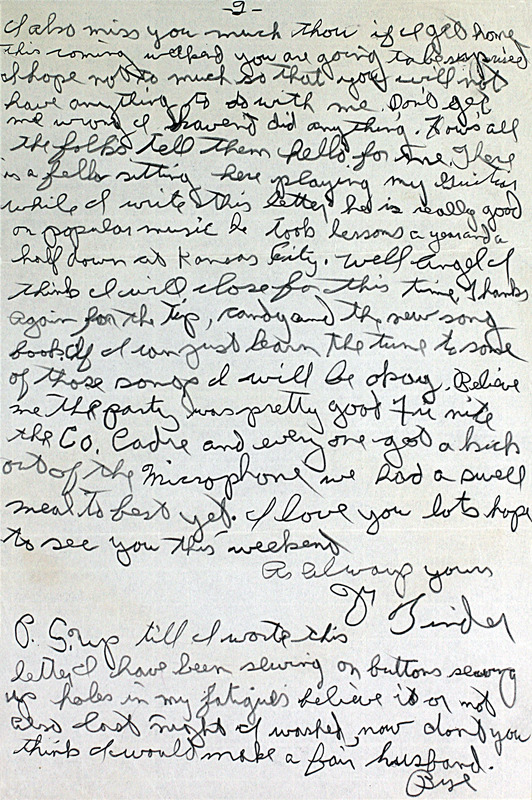 - 2 -
I also miss you much thou if I get home
this coming weekend you are going to be surprised
I hope not to much so that you will not
have anything to do with me. Don't get
me wrong I haven't did anything. Hows all
the folks tell them hello for me. There
is a fella sitting here playing my Guitar
while I write this letter he is really good
on popular music he took lessons a year and a
half down at Kansas City. Well Angel I
think I will close for this time, Thanks
again for the tip, candy and the new song
book if I can just learn the tune to some
of those songs I will be okay. Believe
me the party was pretty good Fri nite
the Co. Cadre and everyone got a kick
out of the Microphone we had a swell
meal to best yet. I love you lots hope
to see you this weekend
As always yours
Tinder
P. S. up till I worte this
letter I have been sewing on buttons sewing
up holes in my fatigues believe it or not
also last night I washed, now don't you
think I would make a fair husband.
Bye